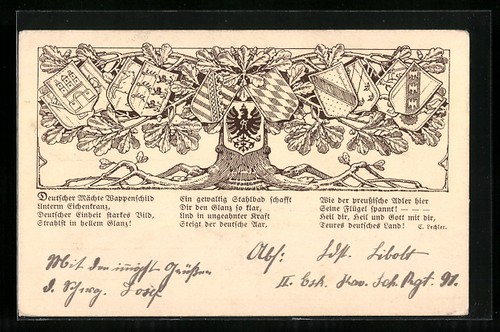 Deutscher Mächte Wappenschild
Unterm Eichenkranz,
Deutscher Einheit starkes Bild,
Strahlst in hellem Glanz!
Ein gewaltig Stahlbad schafft
Dir den Glanz so klar,
Und in ungeahnter Kraft
Steigt der deutsche Aar,
Wie der preußische Adler hier
Seine Flügel spannt! — — —
Heil dir, Heil und Gott mit dir,
Teures deutsches Land!
C. Lechler.
Mit den innigst. Grüßen
d. Schwg. Josef
Abs: Ldst. Libolt
II. Esk. Kav. Sch. Rgt. 91.